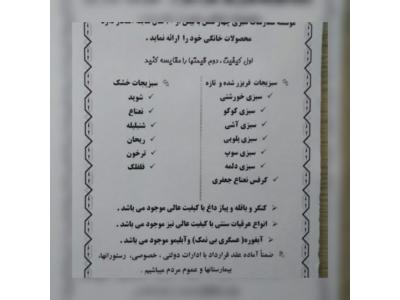 محصولات خانگی خود را ارائه نماید .
اول کیفیت ، دوم قیمتها را مقایسه کنید
سبزیجات فریزر شده و تازه
سبزی خورشتی
سبزی کوکو
سبزی آشی
سبزی پلویی
سبزی سوپ
سبزی دلمه
کرفس نعناع جعفری
سبزیجات خشک
شوید
نعناع
شنبلیله
ریحان
ترخون
فلفلک
کنگر و باقله و پیاز داغ با کیفیت عالی موجود می باشد .
انواع عرقیات سنتی با کیفیت عالی نیز موجود می باشد .
آبغوره( عسگری بی نمک) وآبلیمو موجود می باشد .
ضمناً آماده عقد قرارداد با ادارات دولتی ، خصوصی، رستورانها،
بیمارستانها و عموم مردم میباشیم .